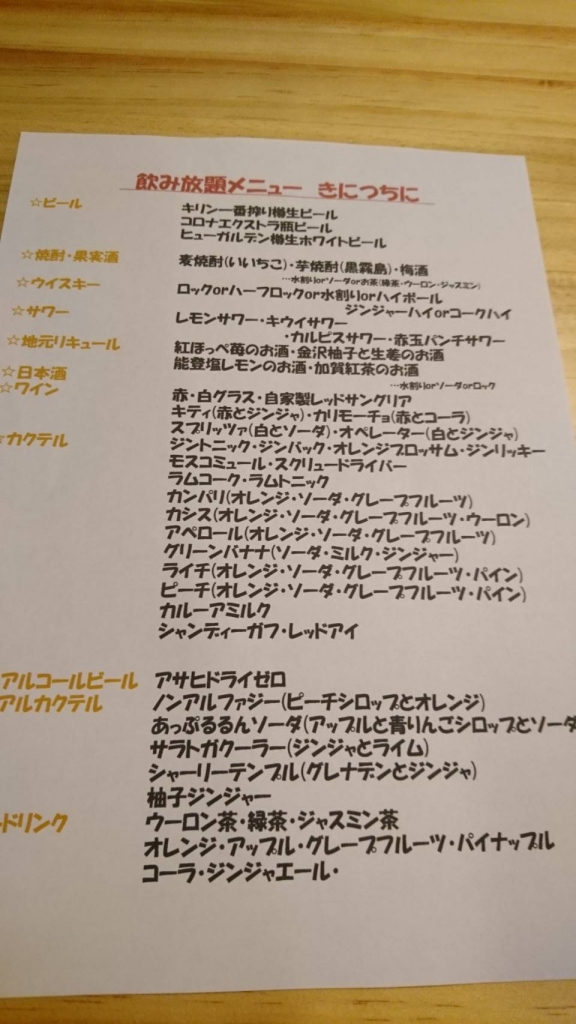 飲み放題メニュー きにつちに
☆ビール キリン一番搾り樽生ビール
コロナエクストラ瓶ビール
ヒューガルデン樽生ホワイトビール
☆焼酎・果実酒 麦焼酎(いいちこ)・芋焼酎(黒霧島)・梅酒
…水割りorソーダorお茶(緑茶・ウーロン・ジャスミン)
☆ウイスキー ロックorハーフロックor水割りorハイボール
ジンジャーハイorコークハイ
☆サワー レモンサワー・キウイサワー
・カルピスサワー・赤玉パンチサワー
☆地元リキュール 紅ほっぺ苺のお酒・金沢柚子と生姜のお酒
能登塩レモンのお酒・加賀紅茶のお酒
☆日本酒 …水割りorソーダorロック
☆ワイン 赤・白グラス・自家製レッドサングリア
キティ(赤とジンジャ)・カリモーチョ(赤とコーラ)
スプリッツァ(白とソーダ)・オペレーター(白とジンジャ)
☆カクテル ジントニック・ジンバック・オレンジブロッサム・ジンリッキー
モスコミュール・スクリュードライバー
ラムコーク・ラムトニック
カンパリ(オレンジ・ソーダ・グレープフルーツ)
カシス(オレンジ・ソーダ・グレープフルーツ・ウーロン)
アペロール(オレンジ・ソーダ・グレープフルーツ)
グリーンバナナ(ソーダ・ミルク・ジンジャー)
ライチ(オレンジ・ソーダ・グレープフルーツ・パイン)
ピーチ(オレンジ・ソーダ・グレープフルーツ・パイン)
カルーアミルク
シャンディーガフ・レッドアイ
アルコールビール アサヒドライゼロ
アルカクテル ノンアルファジー(ピーチシロップとオレンジ)
あっぷるるんソーダ(アップルと青りんごシロップとソーダ
サラトガクーラー(ジンジャとライム)
シャーリーテンプル(グレナデンとジンジャ)
柚子ジンジャー
ドリンク ウーロン茶・緑茶・ジャスミン茶
オレンジ・アップル・グレープフルーツ・パイナップル
コーラ・ジンジャエール・